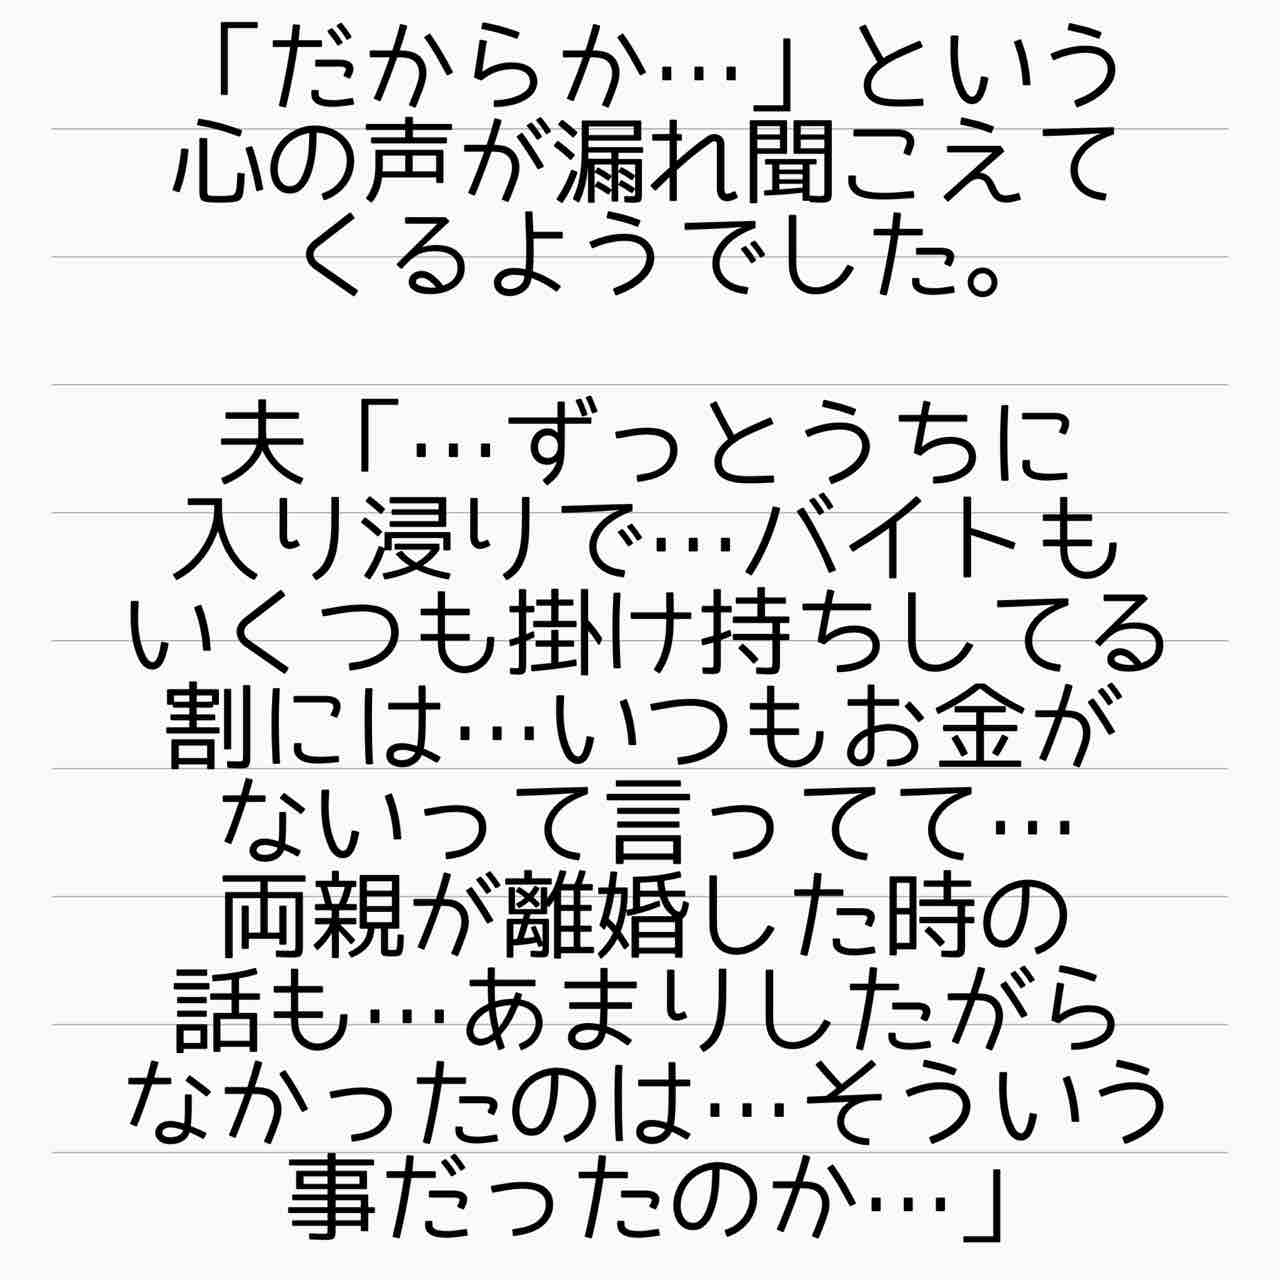 「だからか…」という
心の声が漏れ聞こえて
くるようでした。
夫「…ずっとうちに
入り浸りで…バイトも
いくつも掛け持ちしてる
割には…いつもお金が
ないって言ってて…
両親が離婚した時の
話も…あまりしたがら
なかったのは…そういう
事だったのか…」